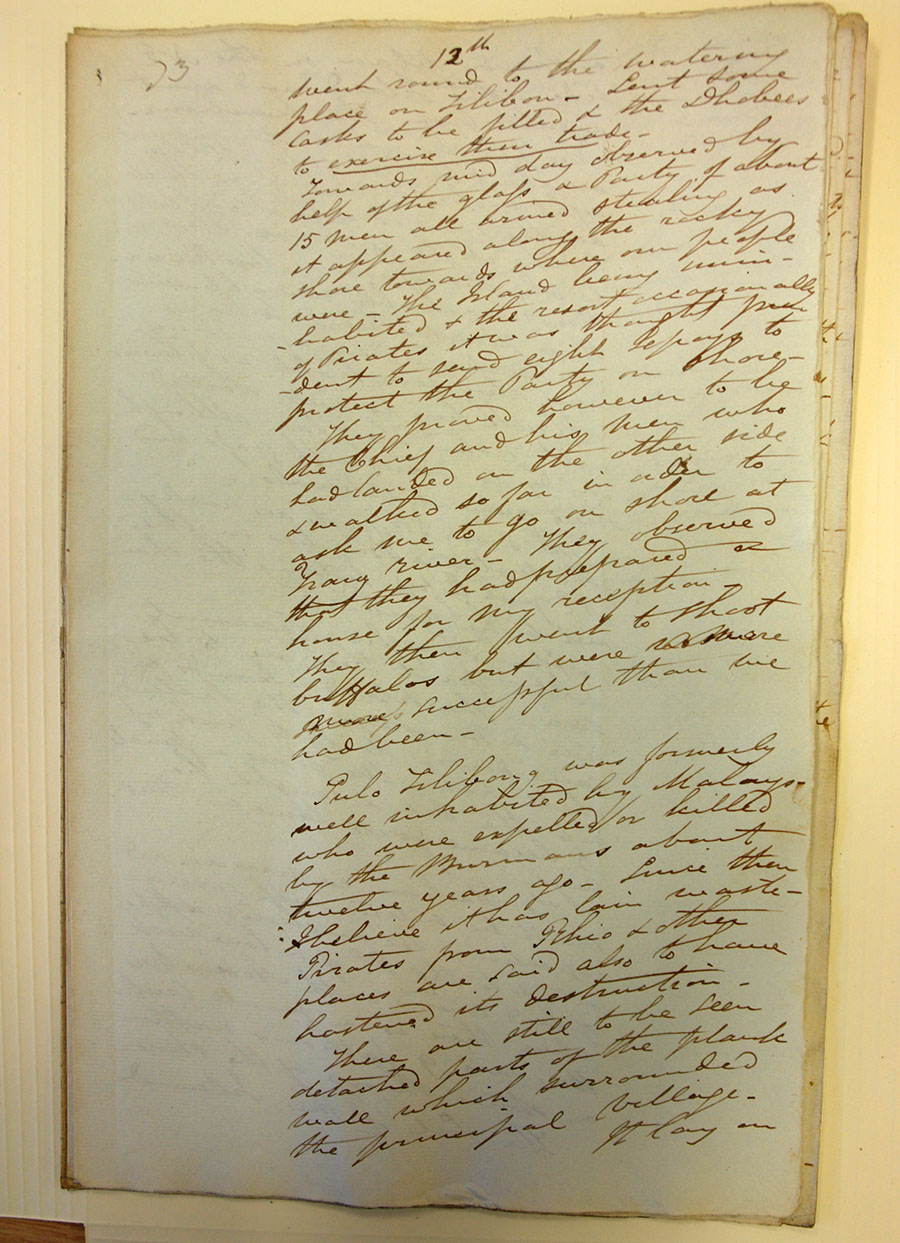 73
12th
went round to the watering
place on Tilibon - Sent some
casks to be filled & the Dhobees
to exercise their trade -
Towards mid day observed by
help of the glass a Party of about
15 men all armed stealing as
it appeared along the rocky
shore towards where our people
were - The Island being unin-
-habited & the resort occasionally
of Pirates it was thought pru
-dent to send eight sepoys to
protect the Party on shore -
They proved however to be
the Chief and his men who
had landed on the other side
& walked so far in order to
ask me to go on shore at
Trang river - They observed
that they had prepared a
house for my reception -
They then went to shoot
buffalos but were
successful than we
had been -
Pulo Tilibong was formerly
well inhabited by Malays -
who were expelled or killed
by the Burmans about
twelve years ago - Since then
I believe it has lain waste -
Pirates from Rhio & other
places are said also to have
hastened its destruction -
There are still to be seen
detached parts of the plank
wall which surrounded
the principal village -
It lay on